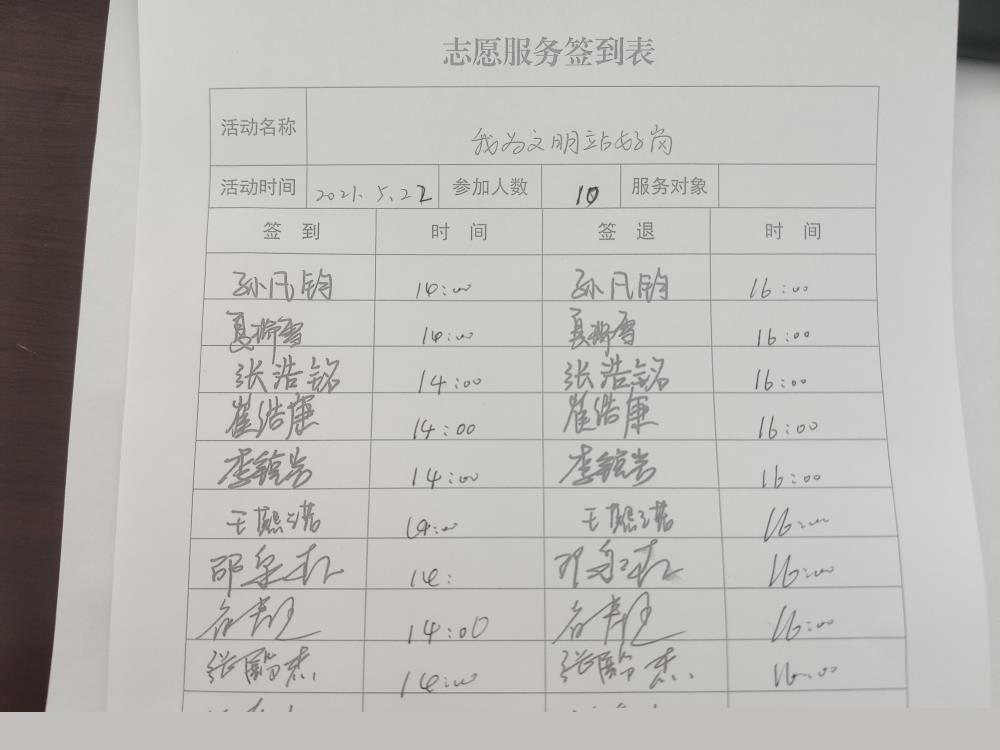 志愿服务签到表
活动名称 我为文明站好岗
活动时间 2021.5.22 参加人数 10 服务对象
签到 时间 签退 时间
孙凡钧 14:00 孙凡钧 16:00
夏 14:00 夏 16:00
张浩铭 14:00 张浩铭 16:00
崔浩康 14:00 崔浩康 16:00
李 14:00 李 16:00
王熙诺 14:00 王熙诺 16:00
邵 14: 邵 16:00
14:00 16:00
张 杰 14:00 张 杰 16:00